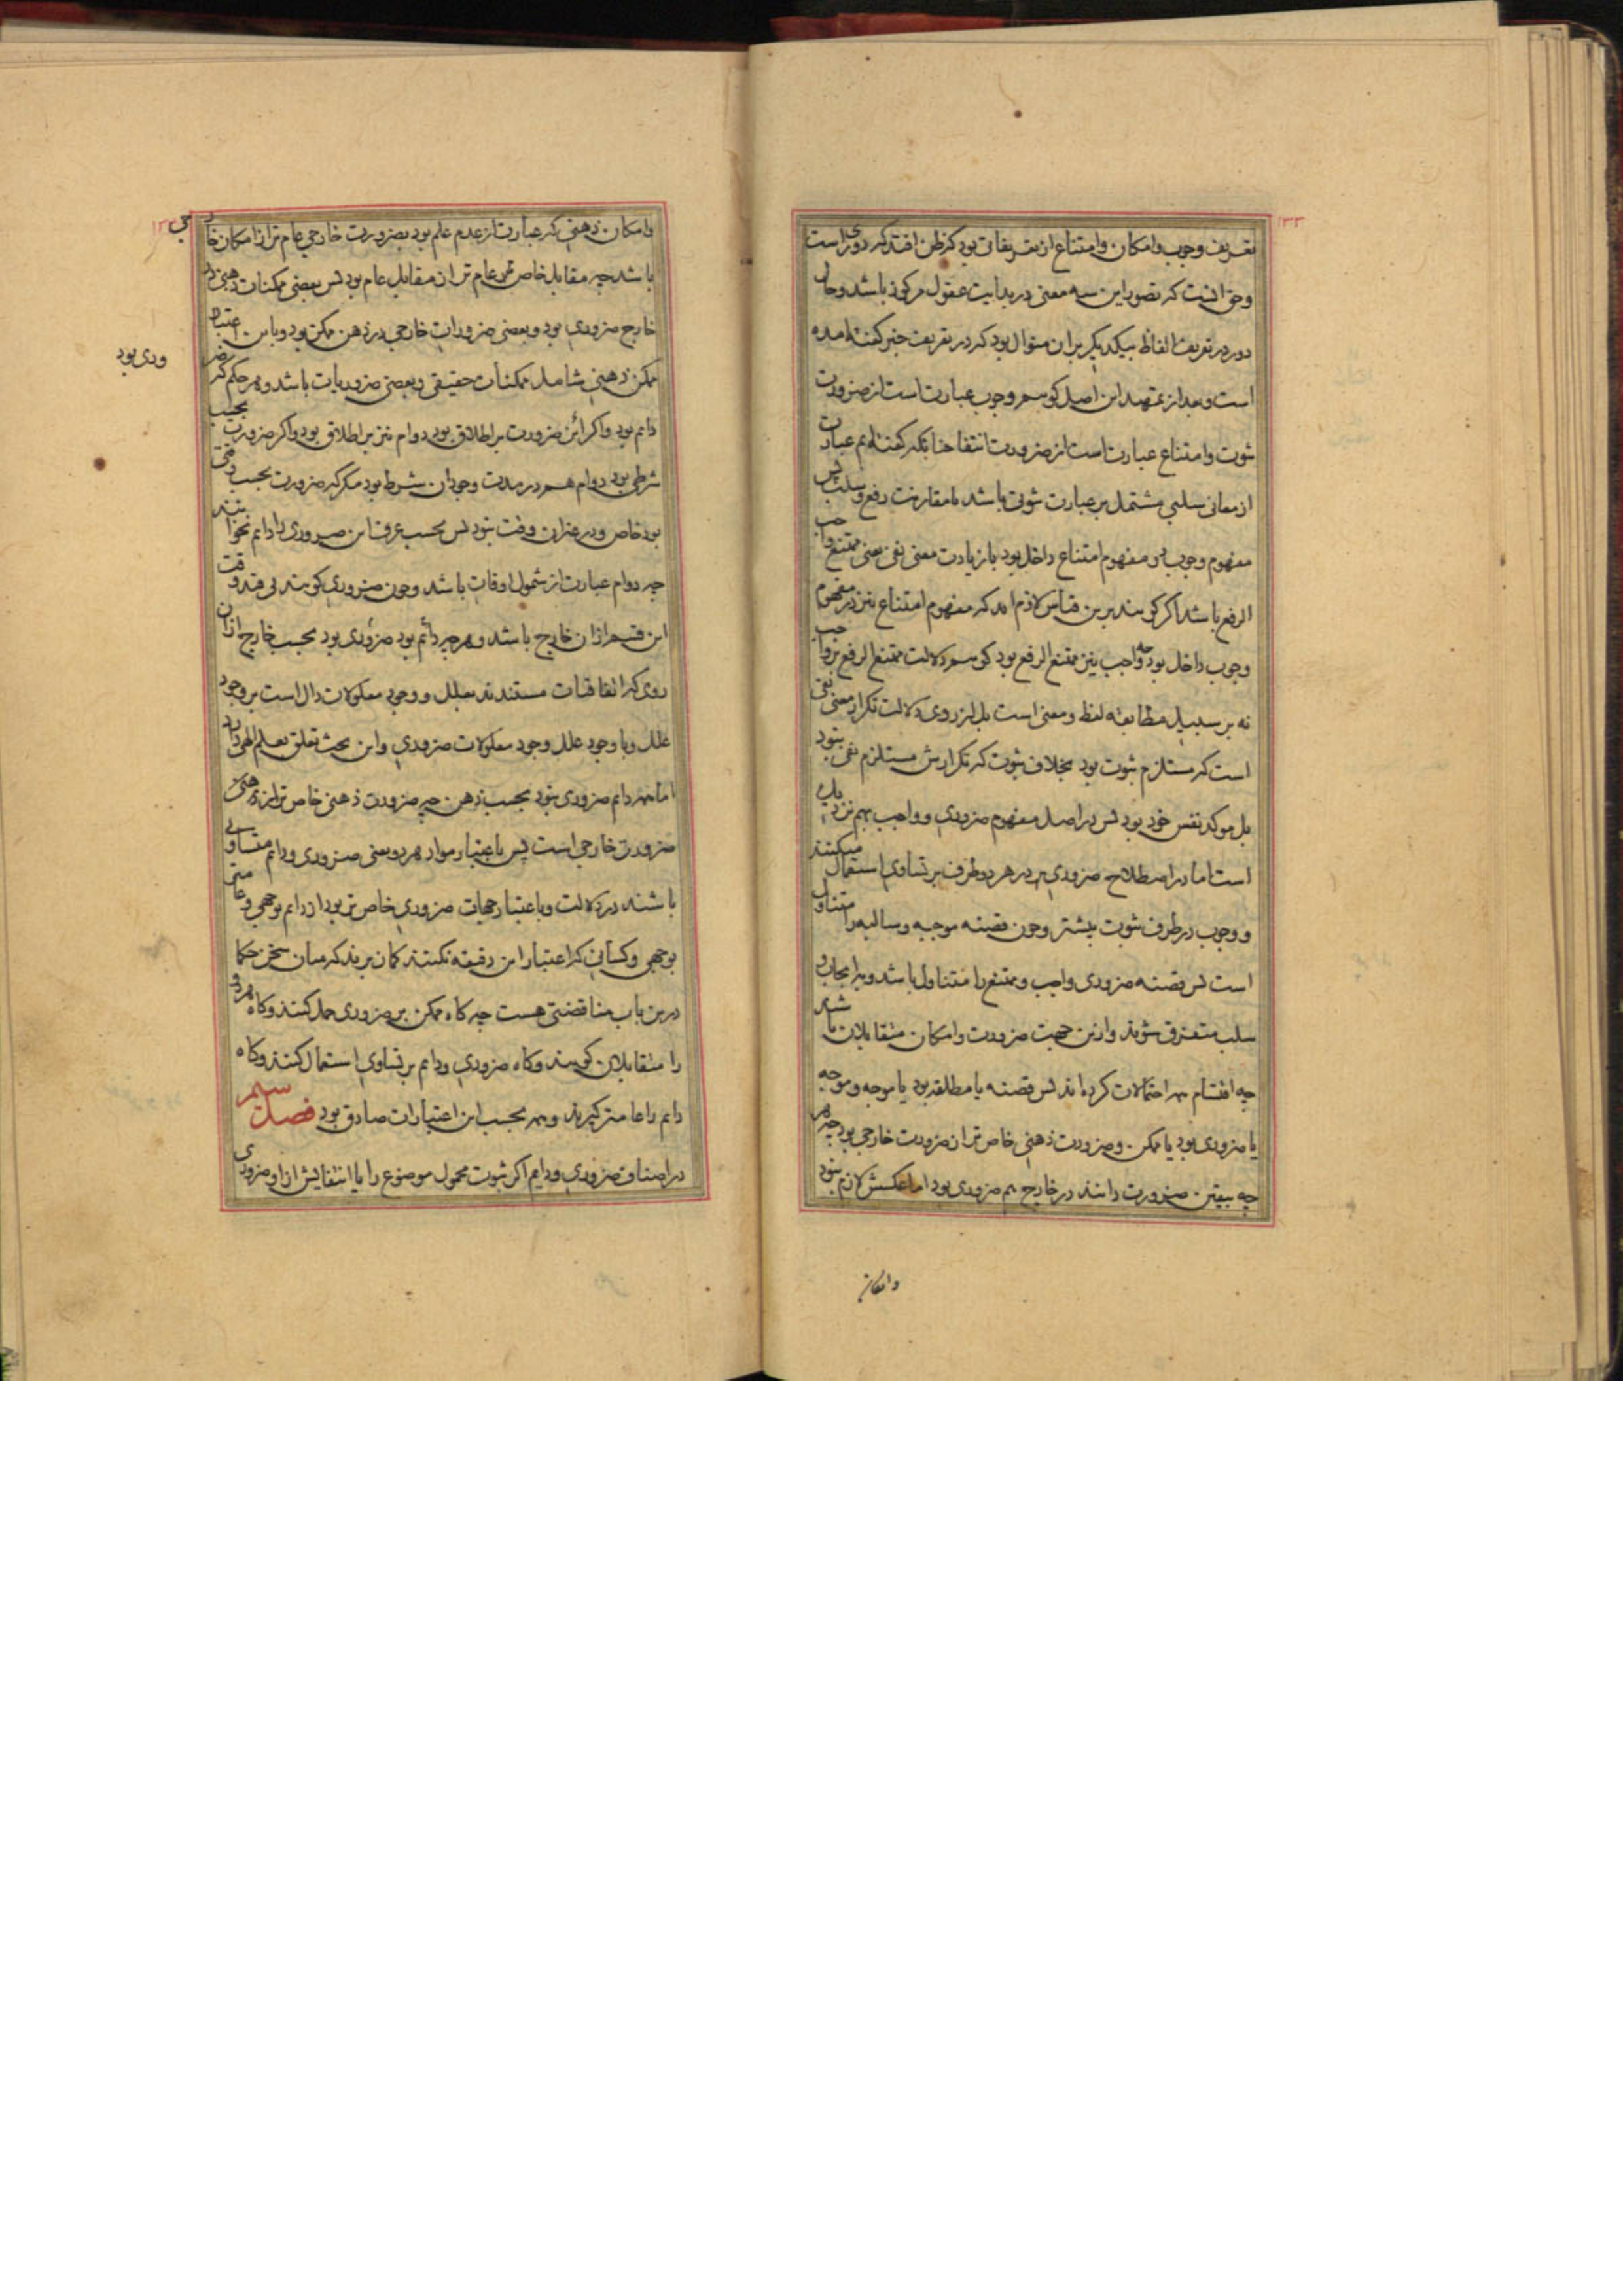 ۱۳۳
تعریف وجوب و امکان و امتناع از تعریفاتی بود که ظن افتد که دوری است
و حق آنست که تصور این سه معنی در بدایت عقول مرکوز باشد و حال
دور در تعریف الفاظ بیکدیگر بران منوال بود که در تعریف خبر گفته آمده
است و بعد از تمهید این اصل کوییم وجوب عبارت است از ضرورت
ثبوت و امتناع عبارت است از ضرورت انتفا چنانکه گفته‌ایم عبارت
از معانی سلبی مشتمل بر عبارت ثبوتی باشد با مقارنت رفع و سلب پس
مفهوم وجوب در مفهوم امتناع داخل بود با زیادت معنی نفی یعنی ممتنع واجب
الرفع باشد اگر کویند برین قیاس لازم اید که مفهوم امتناع نیز در مفهوم
وجوب داخل بود چه واجب نیز ممتنع الرفع بود کوییم دلالت ممتنع الرفع بر واجب
نه بر سبیل مطابقه لفظ و معنی است بل از روی دلالت تکرار معنی نفی
است که مستلزم ثبوت بود بخلاف ثبوت که تکرارش مستلزم نفی نبود
بل موکد نفس خود بود پس در اصل مفهوم ضروری و واجب بهم نزدیک
است اما در اصطلاح ضروری بر هر دو طرف بر تساوی استعمال میکنند
و وجوب در طرف ثبوت بیشتر و چون قضیه موجبه و سالبه را متناول
است پس قضیه ضروری واجب و ممتنع را متناول باشد و بایجاب و
سلب متفرق شوند و ازین جهت ضرورت و امکان متقابلان باشند
چه اقتسام همه احتمالات کرده اند پس قضیه یا مطلقه بود یا موجه و موجه
یا ضروری بود یا ممکن و ضرورت ذهنی خاص تر از ضرورت خارجی بود چه هر
چه بیقین ضرورت دانند در خارج هم ضروری بود اما عکسش لازم نبود
وامکان
و امکان ذهنی که عبارت از عدم علم بود بضرورت خارجی عام تر از امکان خارجی
باشد چه مقابل خاص عام تر از مقابل عام بود پس بعضی ممکنات ذهنی در
خارج ضروری بود و بعضی ضروریات خارجی در ذهن ممکن بود و باین اعتبار
ممکن ذهنی شامل ممکنات حقیقی و بعضی ضروریات باشد و هر حکم که ضر
وری بود
دایم بود و اگر این ضرورت بر اطلاق بود دوام نیز بر اطلاق بود و اگر ضرورت بحسب
شرطی بود دوام هم در مدت وجود ان شرط بود مگر که ضرورت بحسب وقتی
بود خاص و در غیر ان وقت نبود پس بحسب عرف این ضروری را دایم نخوانند
چه دوام عبارت از شمول اوقات باشد و چون ضروری کویند بی قید وقت
این قسم از ان خارج باشد و هر چه دائم بود ضروری بود بحسب خارج از ان
روی که اتفاقیات مستندند بعلل و وجود معلولات دال است بر وجود
علل و با وجود علل وجود معلولات ضروری و این بحث تعلق بعلم الهی دارد
اما هر دایم ضروری نبود بحسب ذهن چه ضرورت ذهنی خاص تر از
ضرورت خارجی است پس باعتبار مواد هر دو یعنی ضروری و دایم متساوی
باشند در دلالت و باعتبار جهات ضروری خاص تر بود از دایم بوجهی و عامتر
بوجهی و کسانی که اعتبار این دقیقه نکنند کمان برند که میان سخن حکما
درین باب مناقضتی هست چه کاه ممکن بر ضروری حمل کنند و کاه هر دو
را متقابلان کویند و کاه ضروری و دایم بر تساوی استعمال کنند و کاه
دایم را عامتر کیرند و همه بحسب این اعتبارات صادق بود فصل سیم
در اصناف ضروری و دایم اگر ثبوت محمول موضوع را یا انتفایش از او ضروری